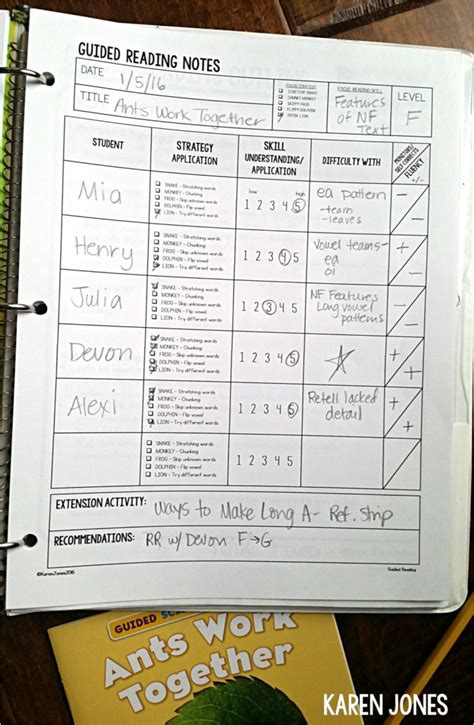 GUIDED READING NOTES
DATE 1/5/16
TITLE Ants Work Together
FOCUS STRATEGY
STRETCHY SNAKE
CHUNKY MONKEY
SKIPPY FROG
FLIPPY DOLPHIN
FOCUS READING SKILL
Features
of NF
Text
LEVEL
F
STUDENT
STRATEGY
APPLICATION
SKILL
UNDERSTANDING/
APPLICATION
DIFFICULTY WITH
MONITORS
SELF CORRECTS
FLUENCY
+/-
Mia
SNAKE - Stretching words
MONKEY - Chunking
FROG - Skip unknown words
DOLPHIN - Flip vowel
LION - Try different words
low high
1 2 3 4 5
ea pattern
-team
-leaves
- -
Henry
SNAKE - Stretching words
MONKEY - Chunking
FROG - Skip unknown words
DOLPHIN - Flip vowel
LION - Try different words
1 2 3 4 5
Vowel teams-
ea
oi
+ -
Julia
SNAKE - Stretching words
MONKEY - Chunking
FROG - Skip unknown words
DOLPHIN - Flip vowel
LION - Try different words
1 2 3 4 5
NF Features
Long vowel
patterns
- -
Devon
SNAKE - Stretching words
MONKEY - Chunking
FROG - Skip unknown words
DOLPHIN - Flip vowel
LION - Try different words
1 2 3 4 5
+ +
Alexi
SNAKE - Stretching words
MONKEY - Chunking
FROG - Skip unknown words
DOLPHIN - Flip vowel
LION - Try different words
1 2 3 4 5
Retell lacked
detail
+ +
SNAKE - Stretching words
MONKEY - Chunking
FROG - Skip unknown words
DOLPHIN - Flip vowel
LION - Try different words
1 2 3 4 5
EXTENSION ACTIVITY: Ways to Make Long A- Ref. Strip
RECOMMENDATIONS: RR w/ Devon F→G
©KarenJones2016
Guided Reading
GUIDED
Ants Work
Together
KAREN JONES